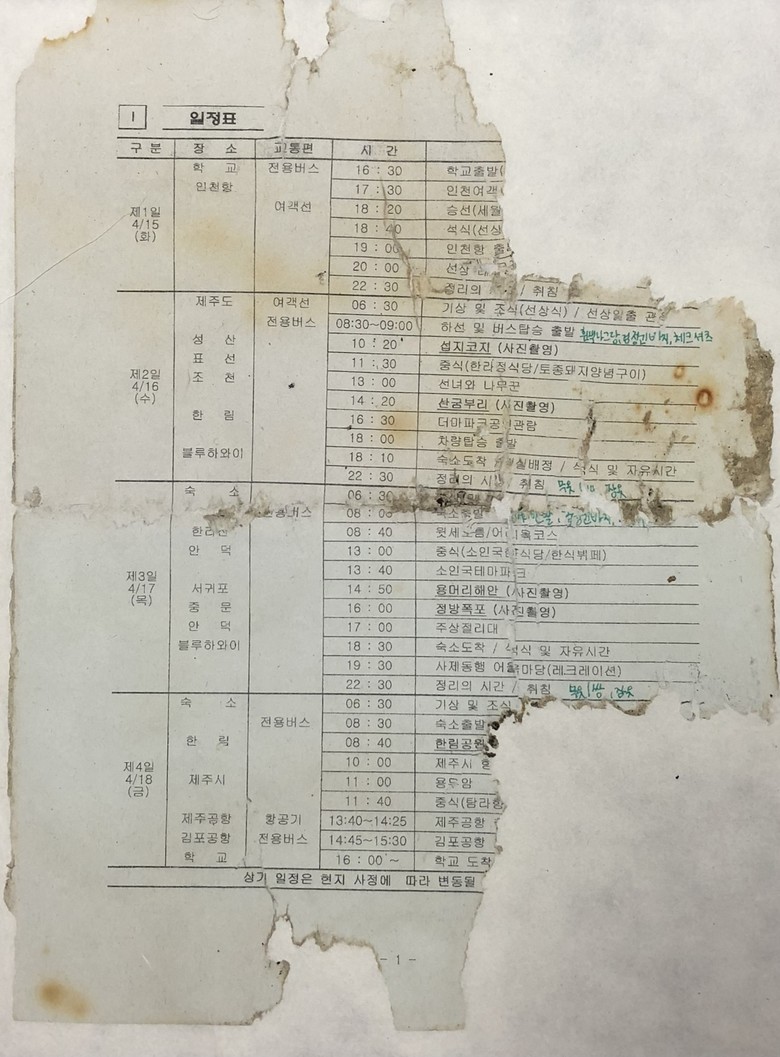 I 일정표
구분 장 소 교통편 시 간
제1일 4/15 (화)
학 교 전용버스 16 : 30 학교출발(
인천항 17 : 30 인천여객
여객선 18 : 20 승선(세월
18 : 40 석식(선상
19 : 00 인천항 출
20 : 00 선상
22 : 30 정리의 / 취침
제2일 4/16 (수)
제주도 여객선 06 : 30 기상 및 조식(선상식) / 선상일출 관
전용버스 08:30~09:00 하선 및 버스탑승 출발 체크셔츠
성 산 10 : 20 섭지코지 (사진촬영)
표 선 11 : 30 중식(한라정식당/토종돼지양념구이)
조 천 13 : 00 선녀와 나무꾼
14 : 20 산굼부리 (사진촬영)
한 림 16 : 30 더마파크공 관람
18 : 00 차량탑승 출발
블루하와이 18 : 10 숙소도착 실배정 / 석식 및 자유시간
22 : 30 정리의 시 취침 잠옷
제3일 4/17 (목)
숙 소 06 : 30
전용버스 08 : 00 숙소출발
한라산 08 : 40 윗세오름/어 목코스
안 덕 13 : 00 중식(소인국 식당/한식뷔페)
13 : 40 소인국테마파크
서귀포 14 : 50 용머리해안 (사진촬영)
중 문 16 : 00 정방폭포 (사진촬영)
안 덕 17 : 00 주상절리대
블루하와이 18 : 30 숙소도착 / 석식 및 자유시간
19 : 30 사제동행 어울마당(레크레이션)
22 : 30 정리의 시간 / 취침 잠옷
제4일 4/18 (금)
숙 소 06 : 30 기상 및 조식
전용버스 08 : 30 숙소출발
한 림 08 : 40 한림공원
10 : 00 제주시
제주시 11 : 00 용두암
11 : 40 중식(탐라
제주공항 항공기 13:40~14:25 제주공항
김포공항 전용버스 14:45~15:30 김포공항
학 교 16 : 00 ~ 학교 도착
상기 일정은 현지 사정에 따라 변동될
- 1 -